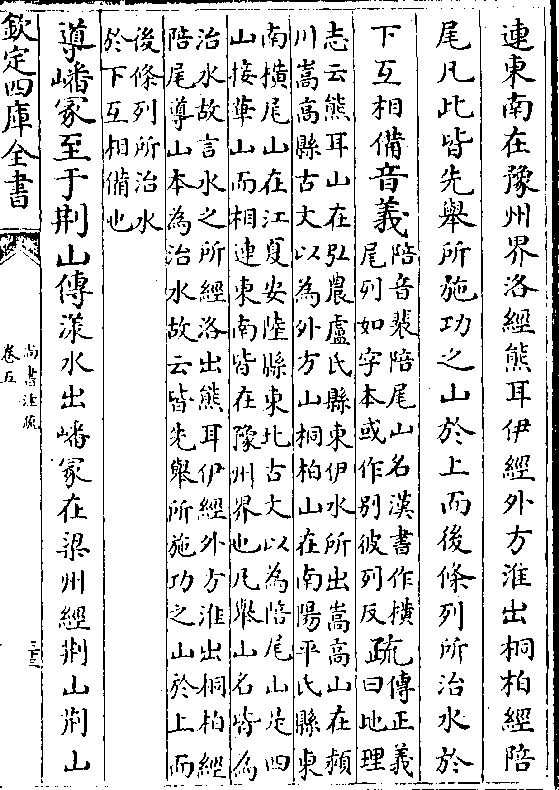 連東南在豫州界洛經熊耳伊經外方淮出桐柏經陪
尾凡此皆先舉所施功之山於上而後條列所治水於
下互相備音義陪音裴陪尾山名漢書作橫
尾列如字本或作别彼列反疏傳正義
曰地理
志云熊耳山在弘農盧氏縣東伊水所出嵩高山在潁
川嵩高縣古文以為外方山桐柏山在南陽平氏縣東
南橫尾山在江夏安陸縣東北古文以為陪尾山是四
山接華山而相連東南皆在豫州界也凡舉山名皆為
治水故言水之所經洛出熊耳伊經外方淮出桐柏經
陪尾導山本為治水故云皆先舉所施功之山於上而
後條列所治水
於下互相備也
導嶓冢至于荆山傳漾水出嶓冢在梁州經荆山荆山
欽定四庫全書
尚書注疏
卷五
三三